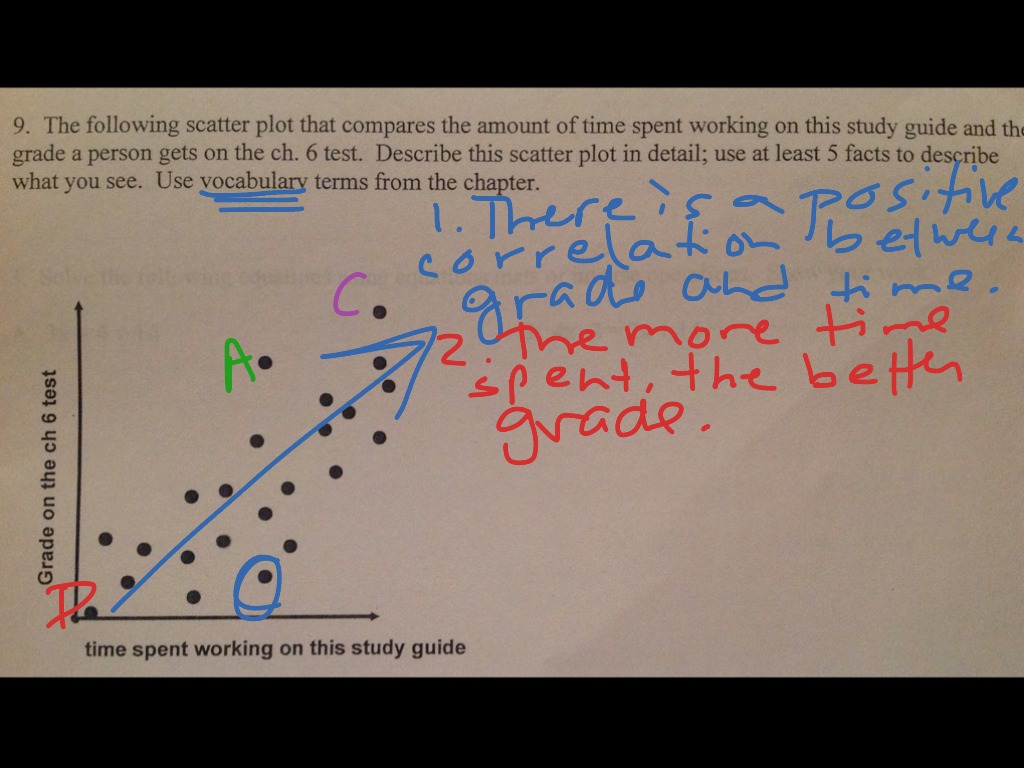 9. The following scatter plot that compares the amount of time spent working on this study guide and the
grade a person gets on the ch. 6 test. Describe this scatter plot in detail; use at least 5 facts to describe
what you see. Use vocabulary terms from the chapter.
1. There is a positive
correlation between
grade and time.
C
A
2. The more time
spent, the better
grade.
Grade on the ch 6 test
D
time spent working on this study guide